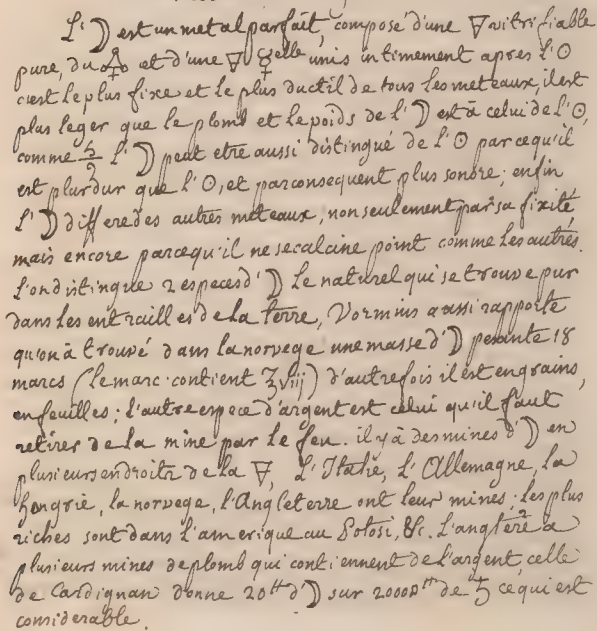 L'☽ est un metal parfait, composé d'une 🜃 vitrifiable
pure, du 🜍 et d'une 🜃 ☿elle unis intimement apres l'☉
c'est le plus fixe et le plus ductil de tous les meteaux, il est
plus leger que le plomb et le poids de l'☽ est à celui de l'☉,
comme 5/9 l'☽ peut etre aussi distingué de l'☉ parcequ'il
est plus dur que l'☉, et par consequent plus sonore; enfin
l'☽ differe des autres meteaux, non seulement par sa fixité,
mais encore parcequ'il ne se calcine point comme les autres.
l'on distingue 2 especes d'☽ le naturel qui se trouve pur
dans les entrailles de la terre, Vormius aussi rapporte
qu'on à trouvé dans la norvege une masse d'☽ pesante 18
marcs (le marc contient ℥viij) d'autrefois il est en grains,
en feuilles; l'autre espece d'argent est celui qu'il faut
retirer de la mine par le feu. il y à des mines d'☽ en
plusieurs endroits de la 🜃, L'Italie, L'Allemagne, la
hongrie, la norvege, l'Angleterre ont leur mines; les plus
riches sont dans l'amerique au Potosi, &c. L'anglere a
plusieurs mines de plomb qui contiennent de l'argent, celle
de Cardignan donne 20 ℔ d'☽ sur 2000 ℔ de ♄ ce qui est
considerable.